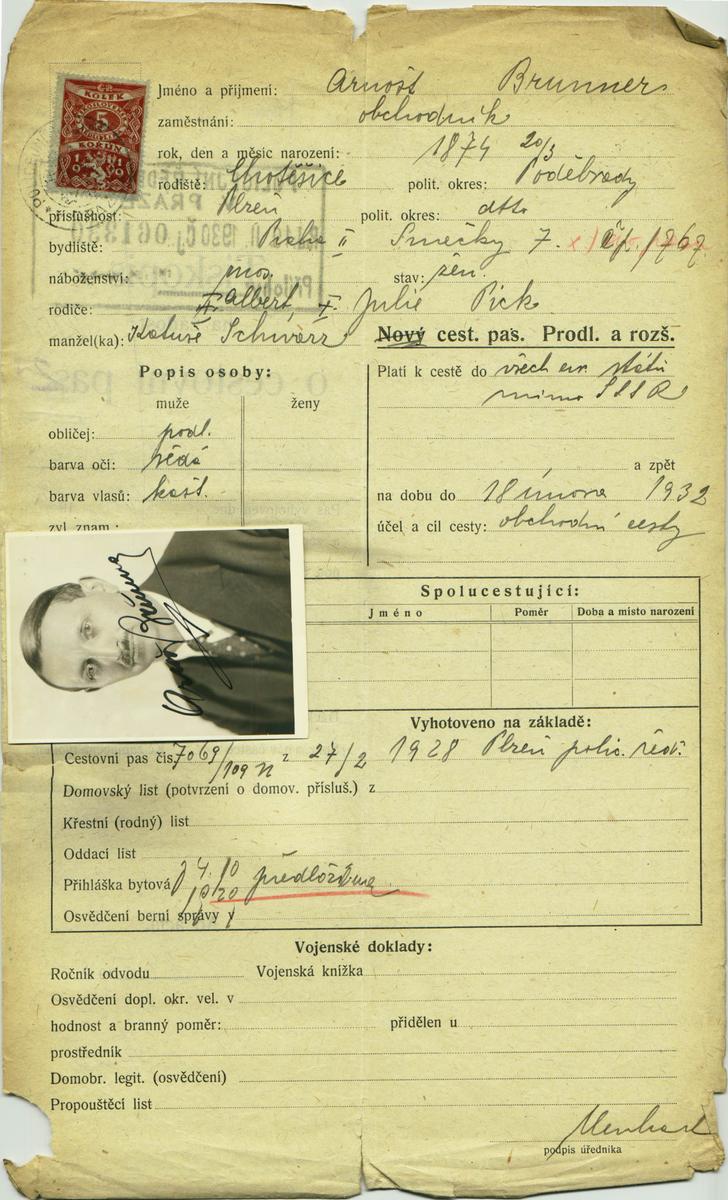 KOLEK
5
KORUN
Jméno a příjmení: Arnošt Brunner
zaměstnání: obchodník
rok, den a měsíc narození: 1874 20/3
rodiště: Chotěšice polit. okres: Poděbrady
příslušnost: Plzeň polit. okres: dtto
bydliště: Praha II Smečky 7.
náboženství: mos. stav: žen.
rodiče: Albert, Julie Pick
manžel(ka): Schwarz
Nový cest. pas. Prodl. a rozš.
Popis osoby:
muže ženy
obličej: podl.
barva očí: šedá
barva vlasů: kašt.
zvl znam.:
Platí k cestě do všech evr. států
mimo SSSR
a zpět
na dobu do 18 února 1932
účel a cíl cesty: obchodní cesty
Spolucestující:
Jméno Poměr Doba a místo narození
Vyhotoveno na základě:
Cestovní pas čís. 7069/109 z 27/2 1928 Plzeň polic. řed.
Domovský list (potvrzení o domov. přísluš.) z
Křestní (rodný) list
Oddací list
Přihláška bytová 4.10 předložena
Osvědčení berní správy v
Vojenské doklady:
Ročník odvodu Vojenská knížka
Osvědčení dopl. okr. vel. v
hodnost a branný poměr: přidělen u
prostředník
Domobr. legit. (osvědčení)
Propouštěcí list
podpis úředníka